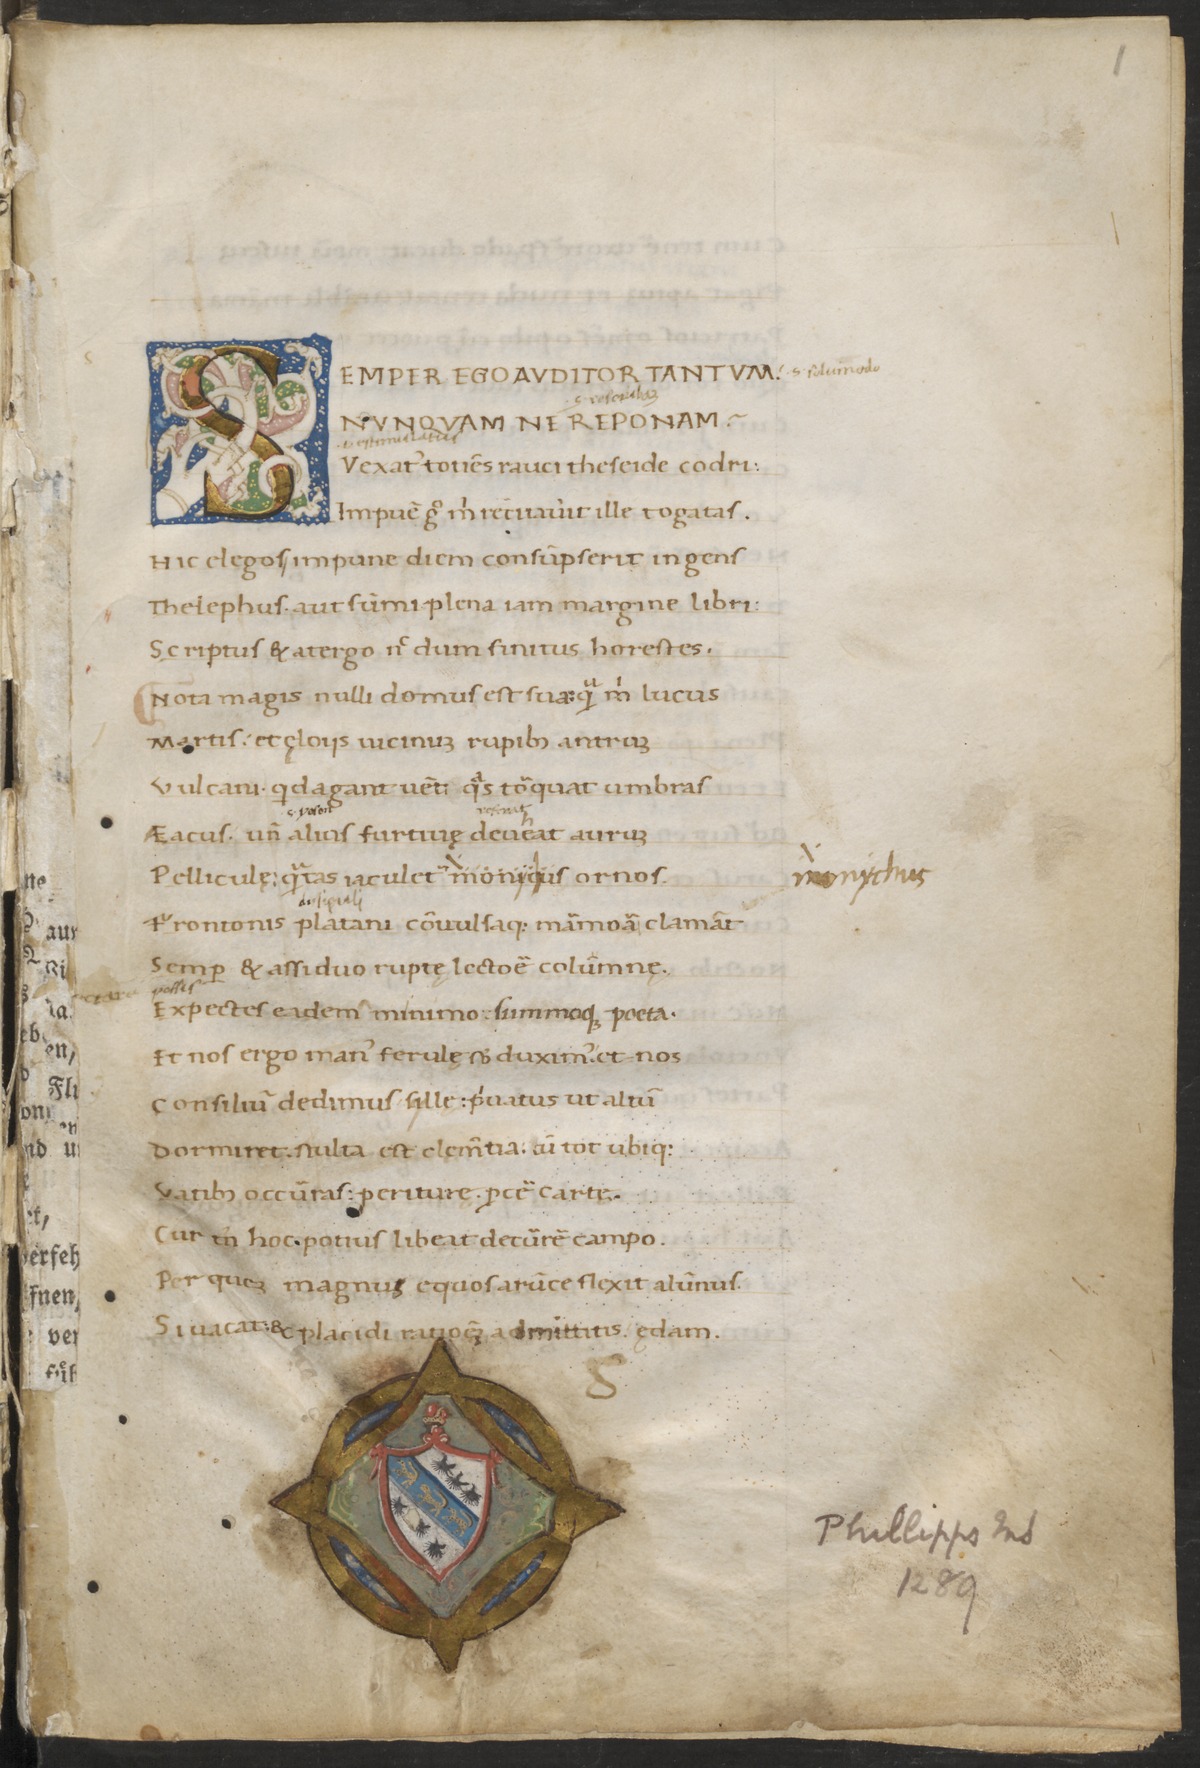 1
SEMPER EGO AVDITOR TANTVM: s. solūmodo
NVNQVAM NE REPONAM
Vexat᷒ totiẽs rauci theseide codri:
Impuẽ gͦ mͥ recitauit ille togatas.
Hic elegos / impune diem consũpserit ingens
Thelephus. aut sũmi plena iam margine libri:
Scriptus & atergo nͨ dum finitus horestes.
Nota magis nulli domus est sua: qͣ mͥ lucus
Martis: et ęloijs uicinuꝫ rupibꝫ antruꝫ
Vulcani. qͥd agant uẽti qͣs tõquat umbras
Æacus. uñ alius furtiuę deueat auruꝫ
Pelliculę: qͣtas iaculet᷒ monichus ornos.
monychus
Frontonis platani cõuulsaqꝫ mãmoã clamãt
Semꝑ & assiduo ruptę lectoẽ colũmnę.
posses
Expectes eadem minimo. summoqꝫ poeta.
Et nos ergo man᷒ ferulę sb᷒ duxim᷒. et nos
Consiliũ dedimus sille: pͥuatus ut altũ
Dormiret. stulta est clem̃tia. cũ tot ubiqꝫ:
Vatibꝫ occũras: periturę. ꝑcẽ cartę.
Cur tñ hoc. potius libeat decũrẽ campo.
Per queꝫ magnus equos arũce flexit alũnus.
Si uacat: & placidi ratioẽꝫ admittitis. ędam.
S
Phillipps Ms
1289